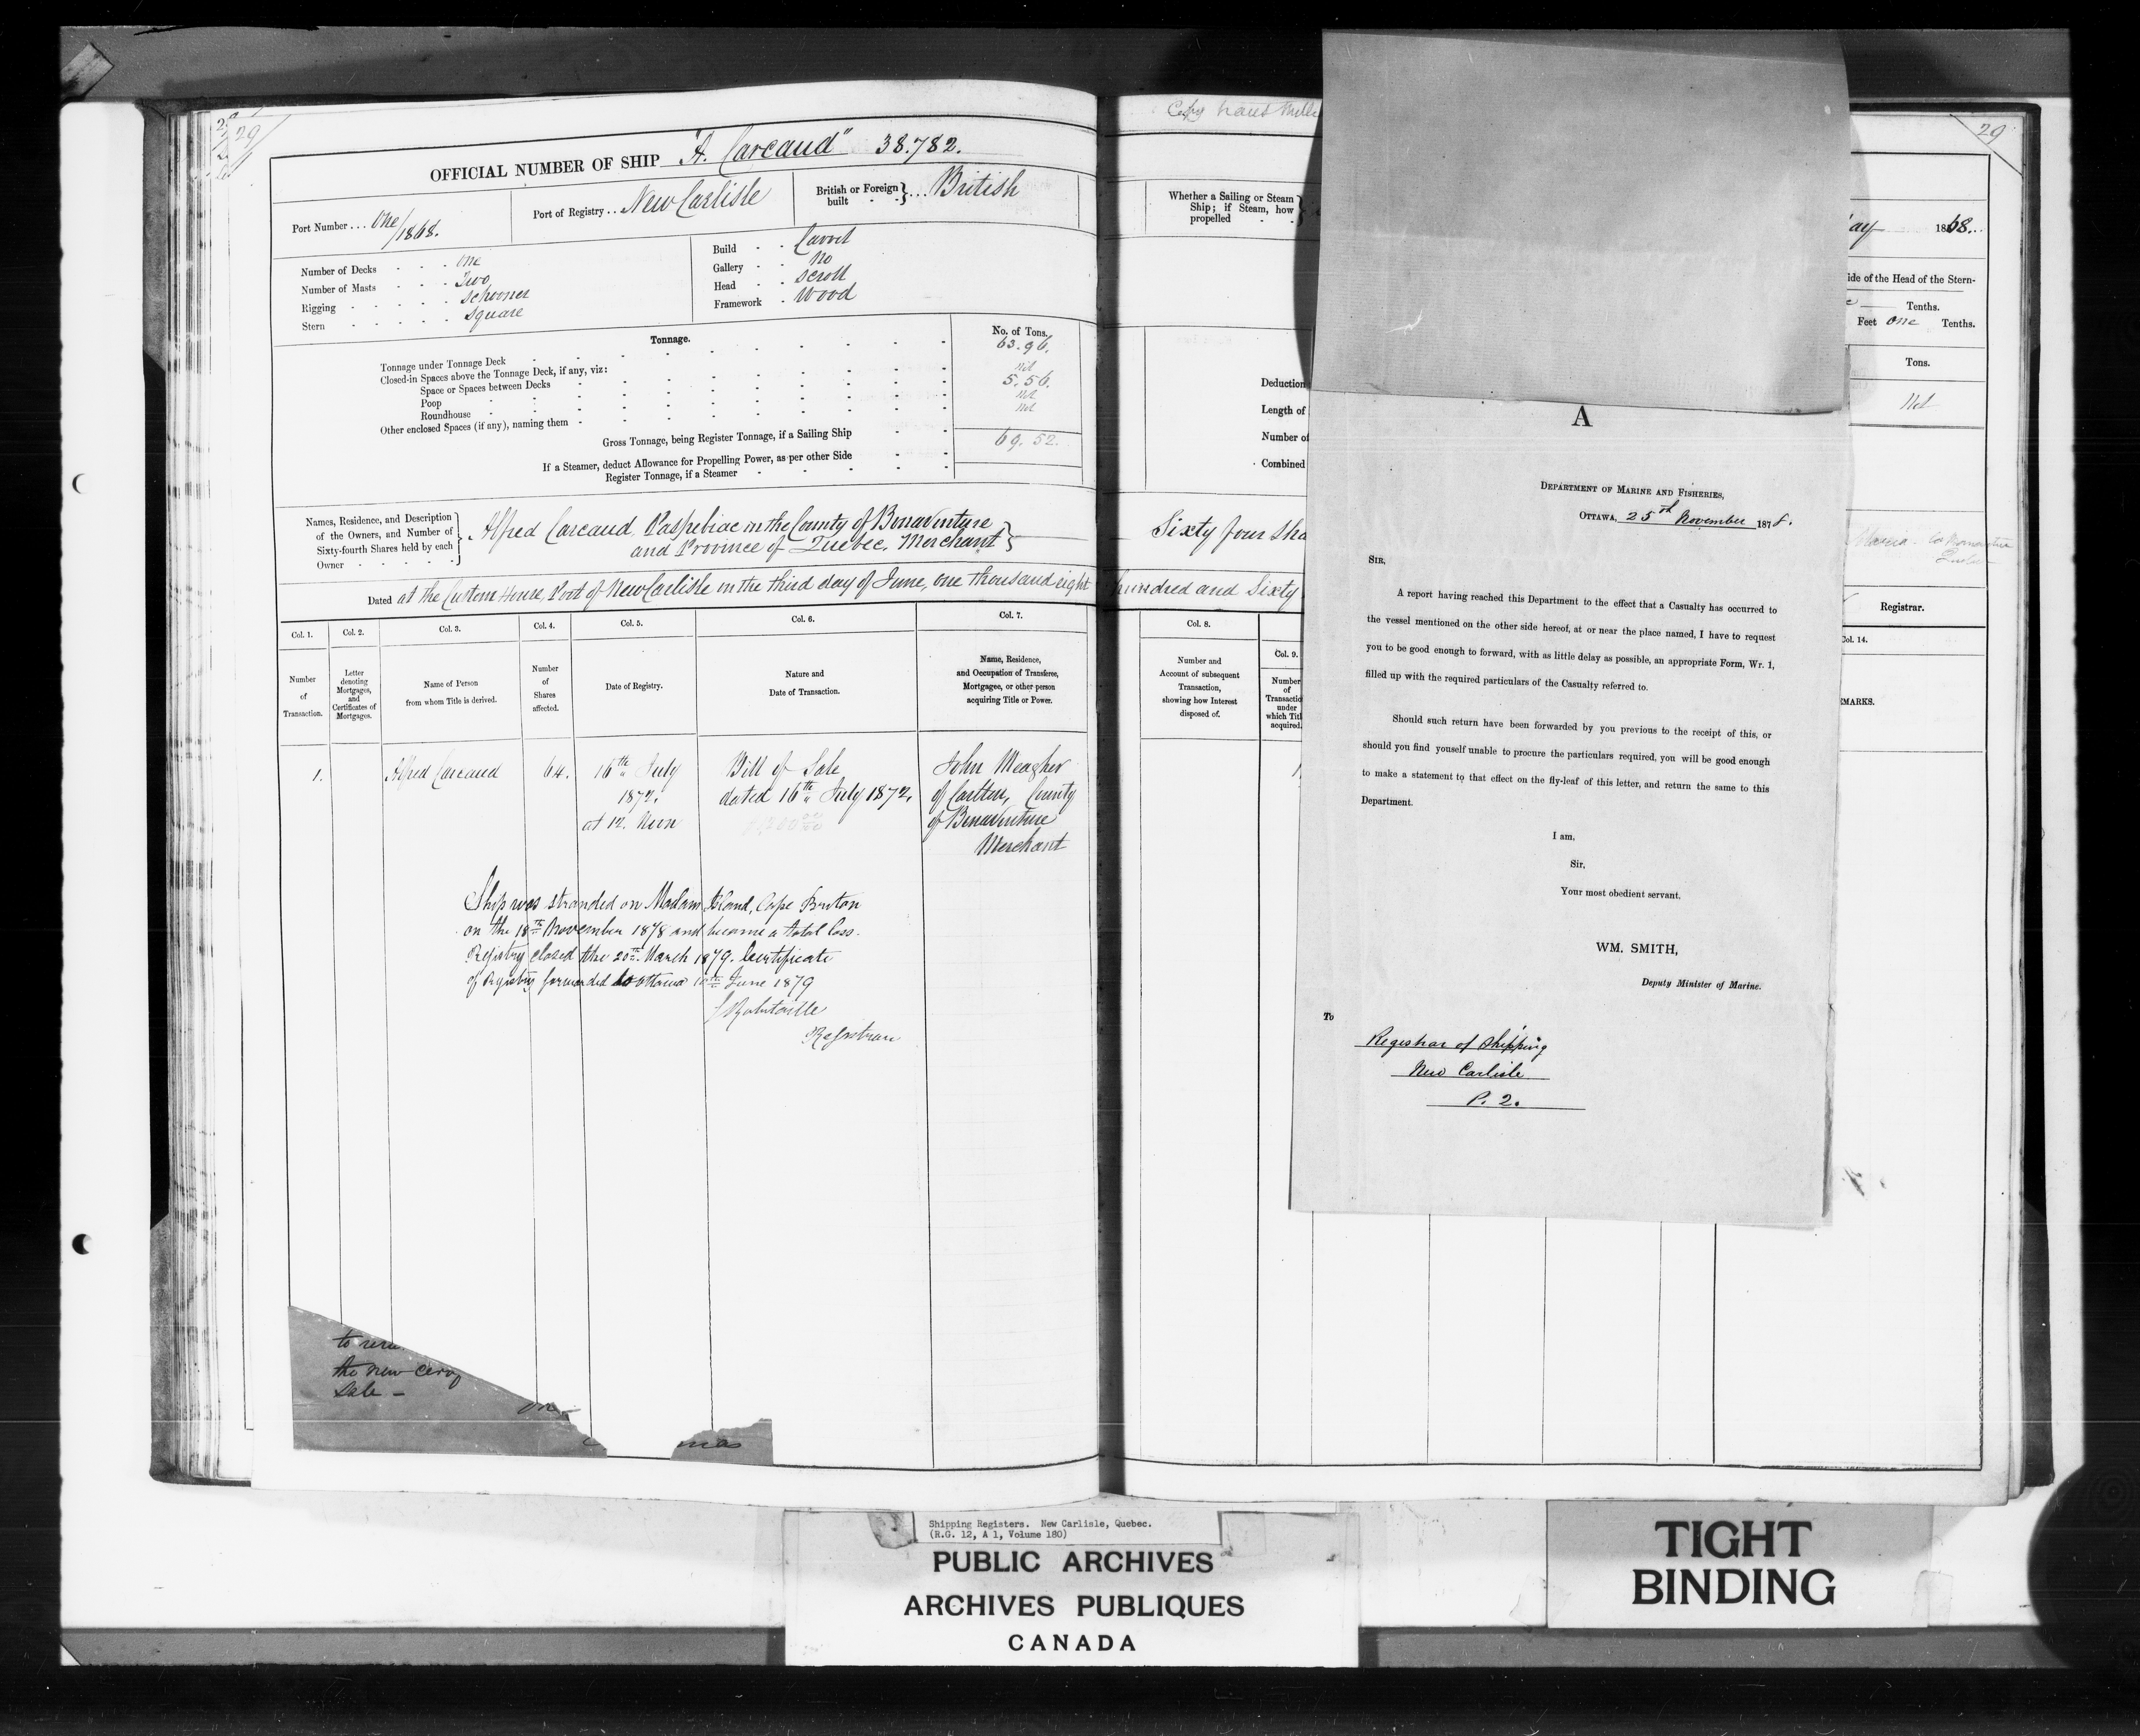 29
OFFICIAL NUMBER OF SHIP "A. Carcaud" 38.782.
Port Number . . . One/1868.
Port of Registry . . New Carlisle
British or Foreign built } . . . British
Number of Decks - - - One
Number of Masts - - - Two
Rigging - - - Schooner
Stern - - - Square
Build - - Carvel
Gallery - - No
Head - - Scroll
Framework - Wood
Tonnage.
No. of Tons.
Tonnage under Tonnage Deck 63.96.
Closed-in Spaces above the Tonnage Deck, if any, viz:
Space or Spaces between Decks Nil
Poop 5.56.
Roundhouse Nil
Other enclosed Spaces (if any), naming them Nil
Gross Tonnage, being Register Tonnage, if a Sailing Ship 69.52.
If a Steamer, deduct Allowance for Propelling Power, as per other Side
Register Tonnage, if a Steamer
Names, Residence, and Description of the Owners, and Number of Sixty-fourth Shares held by each Owner
Alfred Carcaud, Paspebiac in the County of Bonaventure
and Province of Quebec, Merchant }
Dated at the Custom House, Port of New Carlisle in the third day of June, one thousand eight
Col. 1.
Number of Transaction.
Col. 2.
Letter denoting Mortgages, and Certificates of Mortgages.
Col. 3.
Name of Person from whom Title is derived.
Col. 4.
Number of Shares affected.
Col. 5.
Date of Registry.
Col. 6.
Nature and Date of Transaction.
Col. 7.
Name, Residence, and Occupation of Transferee, Mortgagee, or other person acquiring Title or Power.
1.
Alfred Carcaud
64.
16th July
1872.
at 12. Noon
Bill of Sale
dated 16th July 1872.
John Meagher
of Carlton, County
of Bonaventure
Merchant
Ship was stranded on Madam Island, Cape Breton
on the 18th November 1878 and became a total loss.
Registry closed the 20th March 1879. Certificate
of Registry forwarded to Ottawa 10th June 1879
Robitaille
Registrar
the new
Sale -
Copy
29
Whether a Sailing or Steam Ship; if Steam, how propelled
ay 1868.
ide of the Head of the Stern-
Tenths.
Feet one Tenths.
Tons.
Deduction
Length of
Number of
Combined
Nil
Sixty four Sha
hundred and Sixty
Registrar.
Col. 8.
Number and Account of subsequent Transaction, showing how Interest disposed of.
Col. 9.
Number of Transactio under which Titl acquired.
Col. 14.
EMARKS.
A
DEPARTMENT OF MARINE AND FISHERIES,
OTTAWA, 25th November 1878.
SIR,
A report having reached this Department to the effect that a Casualty has occurred to
the vessel mentioned on the other side hereof, at or near the place named, I have to request
you to be good enough to forward, with as little delay as possible, an appropriate Form, Wr. 1,
filled up with the required particulars of the Casualty referred to.
Should such return have been forwarded by you previous to the receipt of this, or
should you find youself unable to procure the particulars required, you will be good enough
to make a statement to that effect on the fly-leaf of this letter, and return the same to this
Department.
I am,
Sir,
Your most obedient servant.
WM. SMITH,
Deputy Minister of Marine.
To
Registrar of Shipping
New Carlisle
P. 2.
Shipping Registers. New Carlisle, Quebec.
(R.G. 12, A 1, Volume 180)
PUBLIC ARCHIVES
ARCHIVES PUBLIQUES
CANADA
TIGHT
BINDING